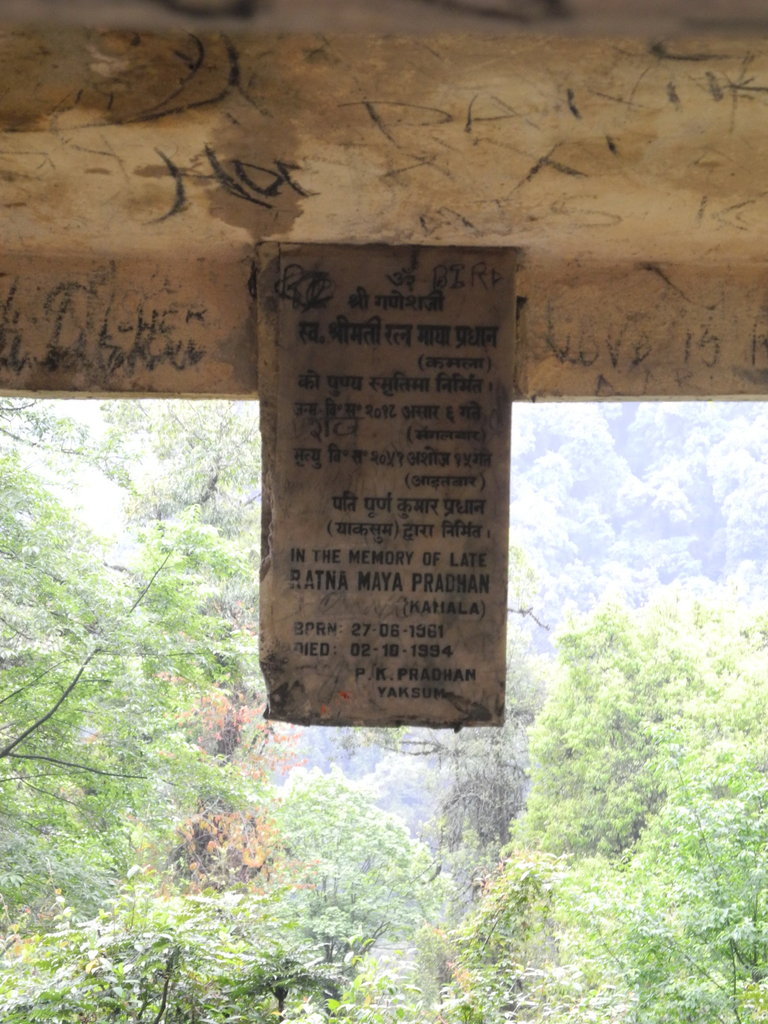 ॐ
श्री गणेशजी
स्व. श्रीमती रत्न माया प्रधान
(कमला)
को पुण्य स्मृतिमा निर्मित।
जन्म वि° स° २०१८ असार ६ गते
(मंगलवार)
मृत्यु वि° स° २०५१ अशोज १५ गते
(आइतवार)
पति पूर्ण कुमार प्रधान
(याकसुम) द्वारा निर्मित।
IN THE MEMORY OF LATE
RATNA MAYA PRADHAN
(KAMALA)
BORN: 27-06-1961
DIED: 02-10-1994
P.K. PRADHAN
YAKSUM